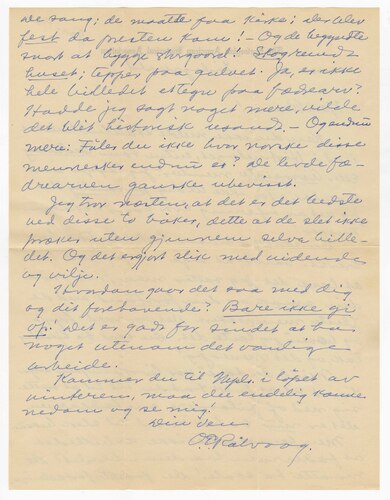 de sang; de maatte faa kirke; der blev
fest da presten kom! — Og de begyndte
snart at bygge storgaard! Skogrensed
huset; tepper paa gulvet. Ja, er ikke
hele billedet et tegn paa fædrearv?
Hadde jeg sagt noget mere, vilde
det blit historisk usand. — Og endnu
mere: Föler du ikke hvor norske disse
mennesker endnu er? De levde fæ-
drearven ganske ubevisst.
Jeg tror næsten, at det er det bedste
ved disse to böker, dette at de slet ikke
præker uten gjennem selve bille-
det. Og det er gjort slik med vidende
og vilje.
Hvordan gaar det saa med dig
og dit forehavende? Bare ikke gi
op. Det er godt for sindet at ha
noget utenom det vanlige
arbeide.
Kommer du til Mpls. i löpet av
vinteren, maa du endelig komme
nedom og se mig!
Din ven
O. E. Rölvaag.